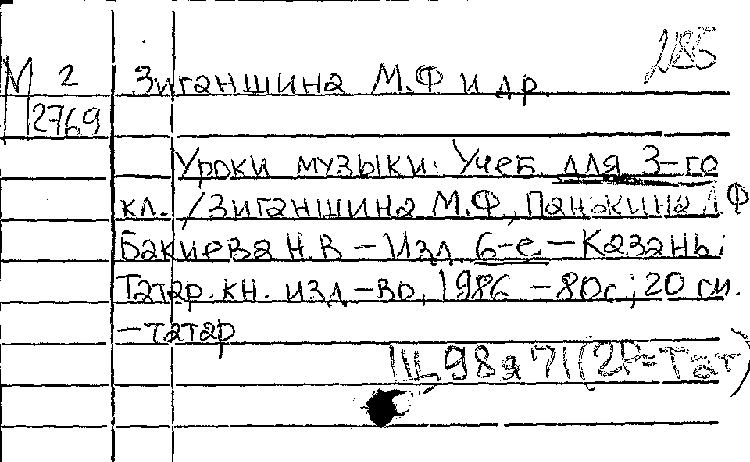 185
М 2 Зиганшина М.Ф и др.
2769
Уроки музыки: Учеб для 3-го
кл. / Зиганшина М.Ф, Панакина Л Ф
Бакиева Н.В – Изд 6-е – Казань:
Татар. кн. изд-во, 1986 – 80с; 20 см.
– татар
Щ 98я 71 (2Р-Тат)